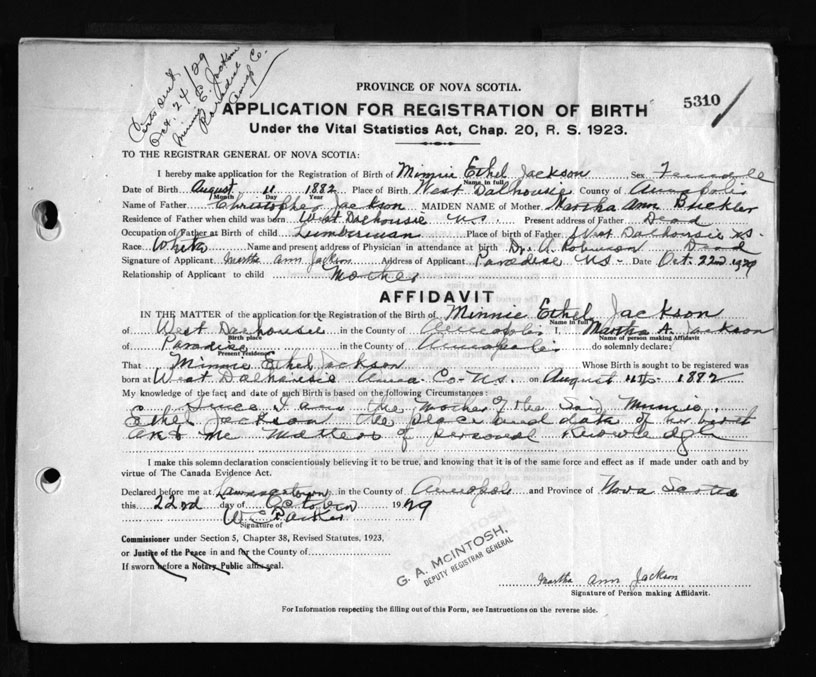 Certs sent
Oct. 24/29
Minnie E. Jackson
Paradise
Anna Co.
PROVINCE OF NOVA SCOTIA.
5310
APPLICATION FOR REGISTRATION OF BIRTH
Under the Vital Statistics Act, Chap. 20, R. S. 1923.
TO THE REGISTRAR GENERAL OF NOVA SCOTIA:
I hereby make application for the Registration of Birth of Minnie Ethel Jackson Sex Female
Name in full
Date of Birth August 11 1882 Place of Birth West Dalhousie County of Annapolis
Month Day Year
Name of Father Christopher Jackson MAIDEN NAME of Mother Martha Ann Buckler
Residence of Father when child was born West Dalhousie NS Present address of Father Dead
Occupation of Father at Birth of child Lumberman Place of birth of Father West Dalhousie NS-
Race White Name and present address of Physician in attendance at birth Dr. A. Robinson Dead
Signature of Applicant Martha Ann Jackson Address of Applicant Paradise NS- Date Oct. 22nd 1929
Relationship of Applicant to child Mother
AFFIDAVIT
IN THE MATTER of the application for the Registration of the Birth of Minnie Ethel Jackson
Name in full
of West Dalhousie in the County of Annapolis I, Martha A. Jackson
Birth place Name of person making Affidavit
of Paradise in the County of Annapolis do solemnly declare:
Present residence
That Minnie Ethel Jackson Whose Birth is sought to be registered was
born at West Dalhousie Anna. Co- NS. on August 11th 1882
My knowledge of the fact and date of such Birth is based on the following Circumstances:
Since I am the Mother of the said Minnie
Ethel Jackson the place and date of her birth
are to me matters of personal knowledge
I make this solemn declaration conscientiously believing it to be true, and knowing that it is of the same force and effect as if made under oath and by
virtue of The Canada Evidence Act.
Declared before me at Lawrencetown in the County of Annapolis and Province of Nova Scotia
this 22nd day of October 1929
Signature of
Commissioner under Section 5, Chapter 38, Revised Statutes, 1923,
or Justice of the Peace in and for the County of
If sworn before a Notary Public affix seal.
G. A. McINTOSH,
DEPUTY REGISTRAR GENERAL
Martha Ann Jackson
Signature of Person making Affidavit.
For Information respecting the filling out of this Form, see Instructions on the reverse side.